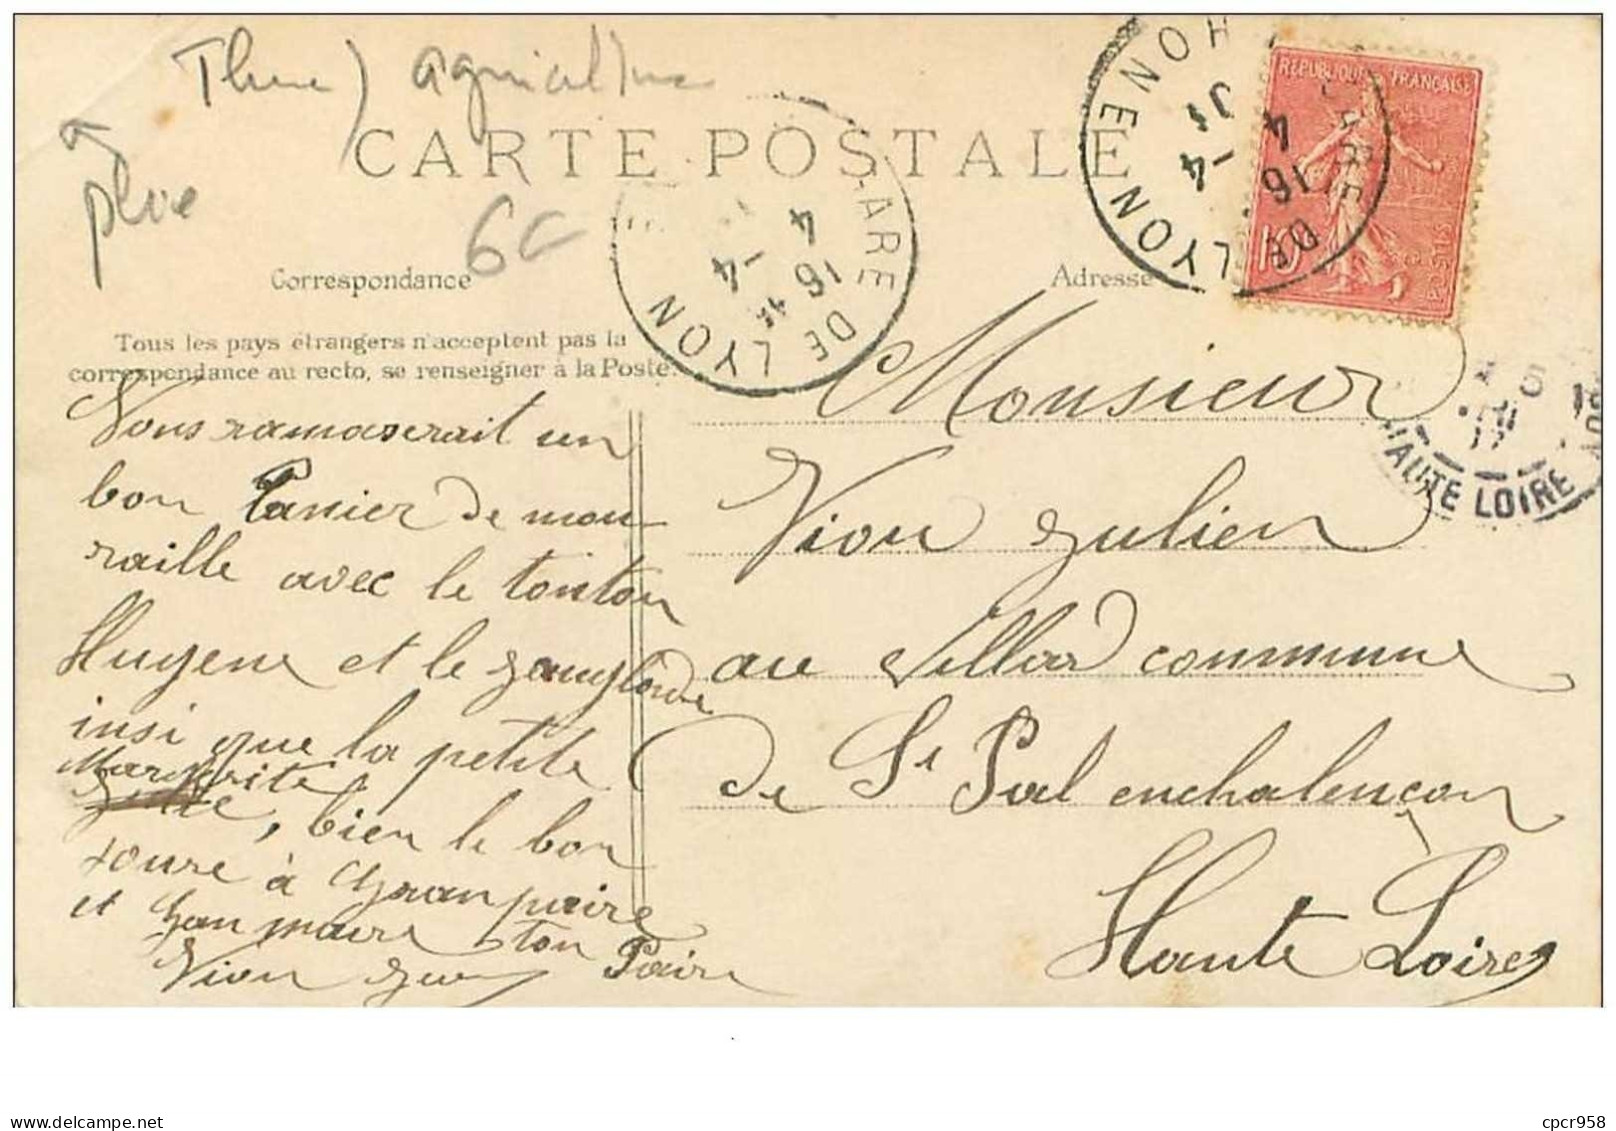 Theme) agriculture
a
pluie
CARTE POSTALE
6C
Correspondance
Adresse
Tous les pays étrangers n'acceptent pas la
correspondance au recto, se renseigner à la Poste.
GARE DE LYON
4
16
-4
GARE DE LYON
RHONE
4
16
-4
REPUBLIQUE FRANÇAISE
10
POSTES
HAUTE LOIRE
Vous ramaserait un
bon Panier de mou
raille avec le tonton
Hugene et le
insi que la petite
Margerite
, bien le bon
joure à Gran paire
et Gran maire ton Paire
Vion
Monsieur
Vion Julien
au Villard commune
de St Pal enchalençon
Haute Loire
delcampe.net
cpcr958